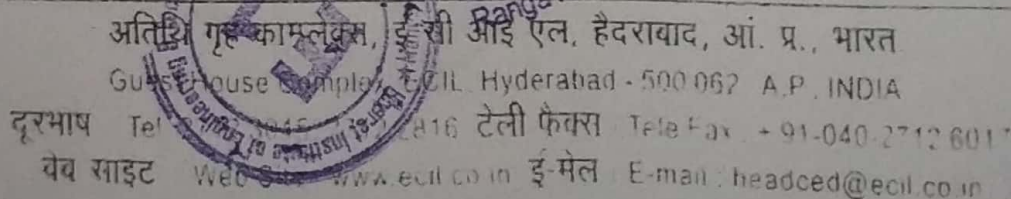 अतिथि गृह काम्प्लेक्स, ई सी आई एल, हैदराबाद, आं. प्र., भारत
Guest House Complex, ECIL, Hyderabad - 500 062 A.P. INDIA
दूरभाष Tel 816 टेली फैक्स Tele Fax : + 91-040-2712 601
वेब साइट Web Site www.ecil.co.in ई-मेल E-mail : headced@ecil.co.in